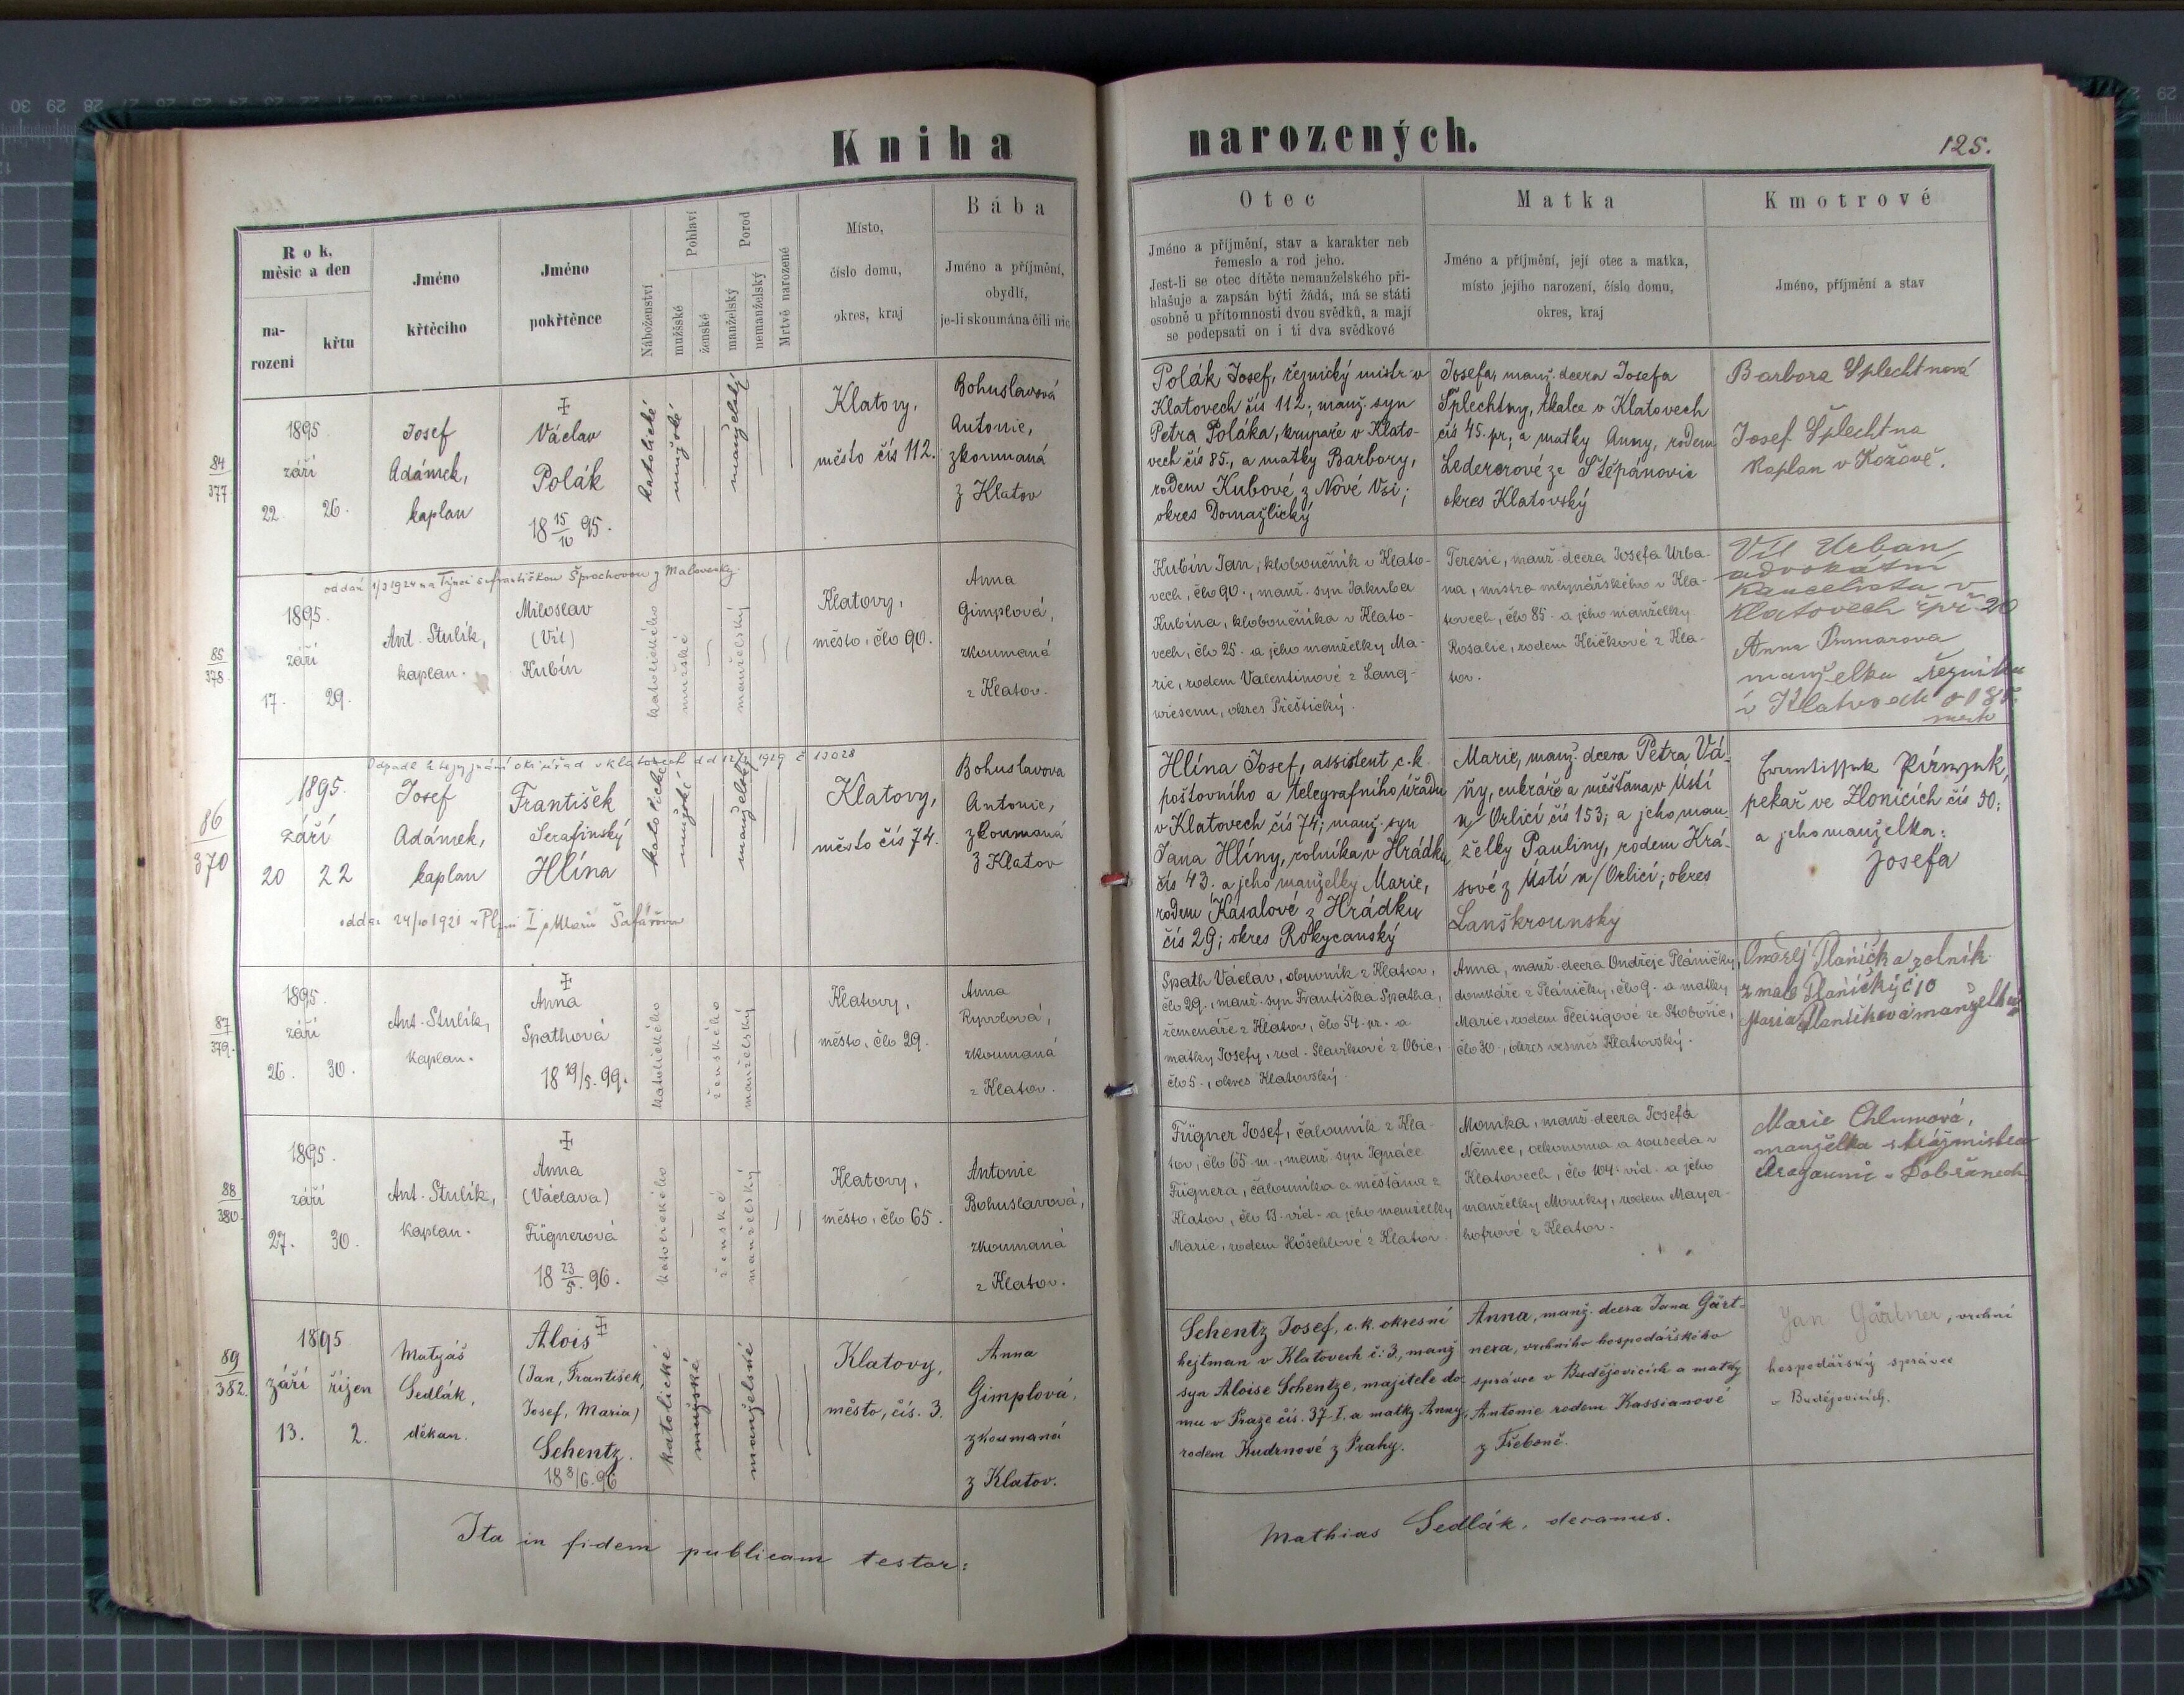 Kniha narozených.
125.
Rok, měsíc a den
na-
rození
křtu
Jméno
křtěcího
Jméno
pokřtěnce
Náboženství
Pohlaví
mužské
ženské
Porod
manželský
nemanželský
Mrtvě narozené
Místo,
číslo domu,
okres, kraj
Bába
Jméno a příjmění,
obydlí,
je-li skoumána čili nic
Otec
Jméno a příjmění, stav a karakter neb
řemeslo a rod jeho.
Jest-li se otec dítěte nemanželského při-
hlašuje a zapsán býti žádá, má se státi
osobně u přítomnosti dvou svědků, a mají
se podepsati on i ti dva svědkové
Matka
Jméno a příjmění, její otec a matka,
místo jejího narození, číslo domu,
okres, kraj
Kmotrové
Jméno, příjmění a stav
84
377
1895
září
22 26.
Josef
Adámek,
kaplan
Václav
Polák
18 15/10 95.
katolické
mužské
manželský
Klatovy,
město čís 112.
Bohuslavová
Antonie,
zkoumaná
z Klatov
Polák Josef, řeznický mistr v
Klatovech čís 112; manž. syn
Petra Poláka, krupaře v Klato-
vech čís 85., a matky Barbory,
rodem Kubové z Nové Vsi;
okres Domažlický
Josefa, manž. dcera Josefa
Šplechtny, tkalce v Klatovech
čís 45. pr; a matky Anny, rodem
Ledererové ze Štěpanovic
okres Klatovský
Barbora Šplechtnová
Josef Šplechtna
kaplan v Kožově.
oddán 1/3 1924 na Týnci s Františkou Šprochovou z Malovesky.
85
378
1895.
září
17. 29.
Ant. Stulík,
kaplan.
Miloslav
(Vít)
Kubín
katolického
mužské
manželský
Klatovy,
město, člo 90.
Anna
Gimplová,
zkoumaná
z Klatov.
Kubín Jan, kloboučník v Klato-
vech, člo 90., manž. syn Jakuba
Kubína, kloboučníka v Klato-
vech, člo 25. a jeho manželky Ma-
rie, rodem Valentinové z Lang-
wiesenu, okres Přeštický.
Teresie, manž. dcera Josefa Urba-
na, mistra mlynářského v Kla-
tovech, člo 85. a jeho manželky
Rosalie, rodem Kličkové z Kla-
tov.
Vít Urban
advokátní
kancelista v
Klatovech čpř 20
Anna
manželka řezníka
v Klatovech
Odpadl k
1929 č 13028
86
370
1895.
září
20 22
Josef
Adámek,
kaplan
František
Serafínský
Hlína
katolické
mužské
manželský
Klatovy,
město čís 74.
Bohuslavova
Antonie,
zkoumaná
z Klatov
Hlína Josef, assistent c.k.
poštovního a telegrafního úřadu
v Klatovech čís 74; manž. syn
Jana Hlíny, rolníka v Hrádku
čís 43. a jeho manželky Marie,
rodem Kasalové z Hrádku
čís 29; okres Rokycanský
Marie, manž. dcera Petra Vá-
ňy, cukráře a měšťana v Ústí
n/Orlicí čís 153; a jeho man-
želky Pauliny, rodem Krá-
sové z Ústí n/Orlicí; okres
Lanškrounský
pekař ve Zlonicích čís 50;
a jeho manželka:
Josefa
oddán 24/10 1921 v Plzni I s Marií Šafářovou
87
379.
1895.
září
26. 30.
Ant. Stulík,
kaplan.
Anna
Spathová
18 19/5. 99.
katolického
ženského
manželský
Klatovy,
město, člo 29.
Anna
Rypolová,
zkoumaná
z Klatov.
Spath Václav, obuvník z Klatov,
člo 29., manž. syn Františka Spatha,
řemenáře z Klatov, člo 54. pr. a
matky Josefy, rod. Slavíkové z Obic,
člo 5., okres Klatovský.
Anna, manž. dcera Ondřeje Pláničky,
domkáře z Pláničky, člo 9. a matky
Marie, rodem Fleisigové ze Stobořic,
člo 30., okres vesměs Klatovský.
Ondřej Planička rolník
z male Planičky č 10
Maria Planičkova manželka
88
380.
1895.
září
27. 30.
Ant. Stulík,
kaplan.
Anna
(Václava)
Fügnerová
18 23/5. 96.
katolického
ženské
manželský
Klatovy,
město, člo 65.
Antonie
Bohuslavová,
zkoumaná
z Klatov.
Fügner Josef, čalouník z Kla-
tov, člo 65 m., manž. syn Ignáce
Fügnera, čalouníka a měšťana z
Klatov, člo 13. víd. a jeho manželky
Marie, rodem Höschlové z Klatov.
Monika, manž. dcera Josefa
Němce, oekonoma a souseda v
Klatovech, člo 104. víd. a jeho
manželky Moniky, rodem Mayer-
hofrové z Klatov.
Marie Chlumová,
manželka strážmistra
dragounů v Dobřanech
89
382.
1895.
září říjen
13. 2.
Matyáš
Sedlák,
děkan.
Alois
(Jan, František,
Josef, Maria)
Schentz.
18 8/6. 96
katolické
mužské
manželské
Klatovy,
město, čís. 3.
Anna
Gimplová,
zkoumaná
z Klatov.
Schentz Josef, c.k. okresní
hejtman v Klatovech č: 3., manž
syn Aloise Schentze, majitele do-
mu v Praze čís. 37-I. a matky Anny,
rodem Kudrnové z Prahy.
Anna, manž. dcera Jana Gärt-
nera, vrchního hospodářského
správce v Budějovicích a matky
Antonie rodem Kassianové
z Třeboně.
Jan Gärtner, vrchní
hospodářský správce
v Budějovicích.
Ita in fidem publicam testor:
Mathias Sedlák, decanus.